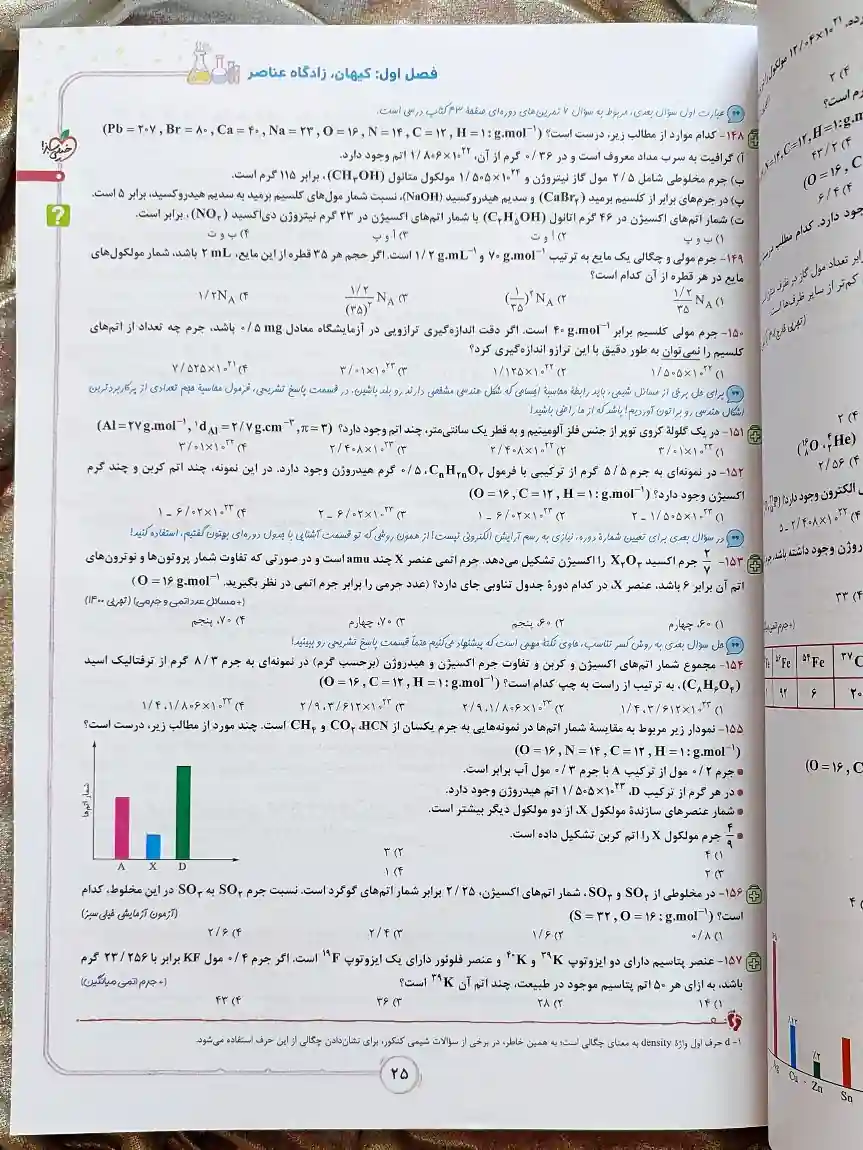 فصل اول: کیهان، زادگاه عناصر
عبارت اول سؤال بعدی، مربوط به سؤال ۷ تمرین‌های دوره‌ای صفحهٔ ۴۳ کتاب درسی است.
۱۴۸- کدام موارد از مطالب زیر، درست است؟ (Pb = ۲۰۷, Br = ۸۰, Ca = ۴۰, Na = ۲۳, O = ۱۶, N = ۱۴, C = ۱۲, H = ۱ : g.mol⁻¹)
آ) گرافیت به سرب مداد معروف است و در ۰/۳۶ گرم از آن، ۱/۸۰۶×۱۰²² اتم وجود دارد.
ب) جرم مخلوطی شامل ۲/۵ مول گاز نیتروژن و ۱/۵۰۵×۱۰²⁴ مولکول متانول (CH₃OH)، برابر ۱۱۵ گرم است.
پ) در جرم‌های برابر از کلسیم برمید (CaBr₂) و سدیم هیدروکسید (NaOH)، نسبت شمار مول‌های کلسیم برمید به سدیم هیدروکسید، برابر ۵ است.
ت) شمار اتم‌های اکسیژن در ۴۶ گرم اتانول (C₂H₅OH) با شمار اتم‌های اکسیژن در ۲۳ گرم نیتروژن دی‌اکسید (NO₂)، برابر است.
۱) ب و پ ۲) آ و ت ۳) آ و پ ۴) ب و ت
۱۴۹- جرم مولی و چگالی یک مایع به ترتیب ۷۰ g.mol⁻¹ و ۱/۲ g.mL⁻¹ است. اگر حجم هر ۳۵ قطره از این مایع، ۲ mL باشد، شمار مولکول‌های
مایع در هر قطره از آن کدام است؟
۱) ۱/۲/۳۵ N_A ۲) (۱/۳۵)² N_A ۳) ۱/۲/(۳۵)² N_A ۴) ۱/۲N_A
۱۵۰- جرم مولی کلسیم برابر ۴۰ g.mol⁻¹ است. اگر دقت اندازه‌گیری ترازویی در آزمایشگاه معادل ۰/۵ mg باشد، جرم چه تعداد از اتم‌های
کلسیم را نمی‌توان به طور دقیق با این ترازو اندازه‌گیری کرد؟
۱) ۱/۵۰۵×۱۰²² ۲) ۱/۱۲۵×۱۰²² ۳) ۳/۰۱×۱۰²³ ۴) ۷/۵۲۵×۱۰²¹
برای حل برخی از مسائل شیمی، باید رابطهٔ محاسبهٔ اجسامی که شکل هندسی مشخصی دارند رو بلد باشین. در قسمت پاسخ تشریحی، فرمول محاسبهٔ حجم تعدادی از پرکاربردترین
اشکال هندسی رو براتون آوردیم! باشد که از ما راضی باشید!
۱۵۱- در یک گلولهٔ کروی توپر از جنس فلز آلومینیم و به قطر یک سانتی‌متر، چند اتم وجود دارد؟ (Al = ۲۷ g.mol⁻¹, ¹d_Al = ۲/۷ g.cm⁻³, π = ۳)
۱) ۳/۰۱×۱۰²³ ۲) ۲/۴۰۸×۱۰²² ۳) ۲/۴۰۸×۱۰²³ ۴) ۳/۰۱×۱۰²²
۱۵۲- در نمونه‌ای به جرم ۵/۵ گرم از ترکیبی با فرمول CₙH₂ₙO₂، ۰/۵ گرم هیدروژن وجود دارد. در این نمونه، چند اتم کربن و چند گرم
اکسیژن وجود دارد؟ (O = ۱۶, C = ۱۲, H = ۱ : g.mol⁻¹)
۱) ۱/۵۰۵×۱۰²³ - ۲ ۲) ۶/۰۲×۱۰²² - ۱ ۳) ۶/۰۲×۱۰²³ - ۲ ۴) ۶/۰۲×۱۰²³ - ۱
در سؤال بعدی برای تعیین شمارهٔ دوره، نیازی به رسم آرایش الکترونی نیست! از همون روشی که تو قسمت آشنایی با جدول دوره‌ای بهتون گفتیم، استفاده کنید!
۱۵۳- ۲/۷ جرم اکسید X₂O₃ را اکسیژن تشکیل می‌دهد. جرم اتمی عنصر X چند amu است و در صورتی که تفاوت شمار پروتون‌ها و نوترون‌های
اتم آن برابر ۶ باشد، عنصر X، در کدام دورهٔ جدول تناوبی جای دارد؟ (عدد جرمی را برابر جرم اتمی در نظر بگیرید. O = ۱۶ g.mol⁻¹)
(+مسائل عدد اتمی و جرمی) (تجربی ۱۴۰۰)
۱) ۶۰، چهارم ۲) ۶۰، پنجم ۳) ۷۰، چهارم ۴) ۷۰، پنجم
حل سؤال بعدی به روش کسر تناسب، حاوی نکتهٔ مهمی است که پیشنهاد می‌کنیم حتماً قسمت پاسخ تشریحی رو ببینید!
۱۵۴- مجموع شمار اتم‌های اکسیژن و کربن و تفاوت جرم اکسیژن و هیدروژن (برحسب گرم) در نمونه‌ای به جرم ۸/۳ گرم از ترفتالیک اسید
(C₈H₆O₄)، به ترتیب از راست به چپ کدام است؟ (O = ۱۶, C = ۱۲, H = ۱ : g.mol⁻¹)
۱) ۳/۶۱۲×۱۰²³، ۱/۴ ۲) ۱/۸۰۶×۱۰²³، ۲/۹ ۳) ۳/۶۱۲×۱۰²³، ۲/۹ ۴) ۱/۸۰۶×۱۰²³، ۱/۴
۱۵۵- نمودار زیر مربوط به مقایسهٔ شمار اتم‌ها در نمونه‌هایی به جرم یکسان از HCN، CO₂ و CH₄ است. چند مورد از مطالب زیر، درست است؟
(O = ۱۶, N = ۱۴, C = ۱۲, H = ۱ : g.mol⁻¹)
جرم ۰/۲ مول از ترکیب A با جرم ۰/۳ مول آب برابر است.
در هر گرم از ترکیب D، ۱/۵۰۵×۱۰²³ اتم هیدروژن وجود دارد.
شمار عنصرهای سازندهٔ مولکول X، از دو مولکول دیگر بیشتر است.
۴/۹ جرم مولکول X را اتم کربن تشکیل داده است.
۱) ۴ ۲) ۳
۳) ۲ ۴) ۱
شمار اتم‌ها
A X D
۱۵۶- در مخلوطی از SO₂ و SO₃، شمار اتم‌های اکسیژن، ۲/۲۵ برابر شمار اتم‌های گوگرد است. نسبت جرم SO₂ به SO₃ در این مخلوط، کدام
است؟ (S = ۳۲, O = ۱۶ : g.mol⁻¹) (آزمون آزمایشی خیلی سبز)
۱) ۰/۸ ۲) ۱/۶ ۳) ۲/۴ ۴) ۲/۶
۱۵۷- عنصر پتاسیم دارای دو ایزوتوپ ³⁹K و ⁴⁰K و عنصر فلوئور دارای یک ایزوتوپ ¹⁹F است. اگر جرم ۰/۴ مول KF برابر با ۲۳/۲۵۶ گرم
باشد، به ازای هر ۵۰ اتم پتاسیم موجود در طبیعت، چند اتم آن ³⁹K است؟ (+جرم اتمی میانگین)
۱) ۱۴ ۲) ۲۸ ۳) ۳۶ ۴) ۴۳
۱- d حرف اول واژهٔ density به معنای چگالی است؛ به همین خاطر، در برخی از سؤالات شیمی کنکور، برای نشان‌دادن چگالی از این حرف استفاده می‌شود.
۲۵